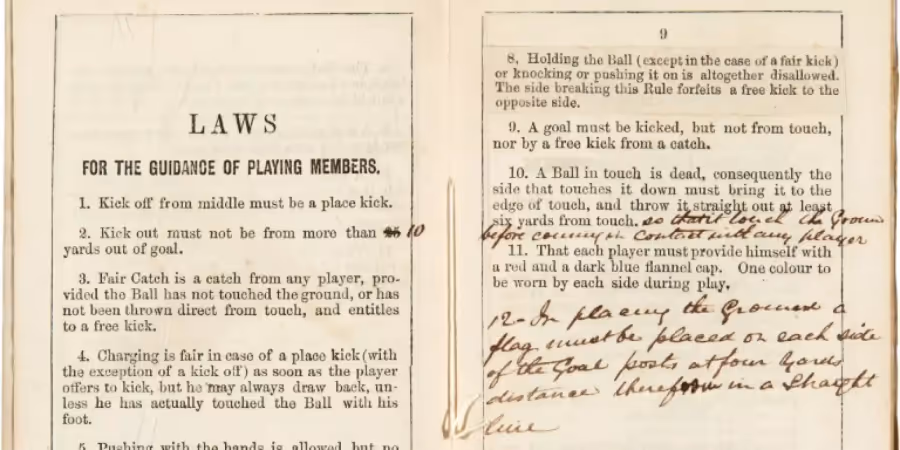 LAWS
FOR THE GUIDANCE OF PLAYING MEMBERS.
1. Kick off from middle must be a place kick.
2. Kick out must not be from more than 25 10
yards out of goal.
3. Fair Catch is a catch from any player, pro-
vided the Ball has not touched the ground, or has
not been thrown direct from touch, and entitles
to a free kick.
4. Charging is fair in case of a place kick (with
the exception of a kick off) as soon as the player
offers to kick, but he may always draw back, un-
less he has actually touched the Ball with his
foot.
5. Pushing with the hands is allowed, but no
9
8. Holding the Ball (except in the case of a fair kick)
or knocking or pushing it on is altogether disallowed.
The side breaking this Rule forfeits a free kick to the
opposite side.
9. A goal must be kicked, but not from touch,
nor by a free kick from a catch.
10. A Ball in touch is dead, consequently the
side that touches it down must bring it to the
edge of touch, and throw it straight out at least
six yards from touch. so that it touch the Ground
before coming in contact with any player
11. That each player must provide himself with
a red and a dark blue flannel cap. One colour to
be worn by each side during play.
12- In placing the Ground a
flag must be placed on each side
of the Goal posts at four Yards
distance therefrom in a Straight
line